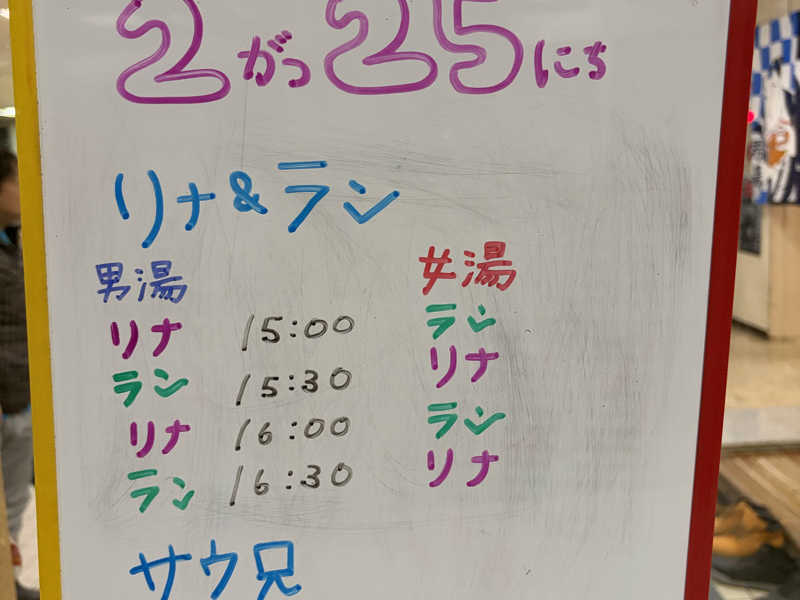 2がつ25にち
リナ&ラン
男湯 女湯
リナ 15:00 ラン
ラン 15:30 リナ
リナ 16:00 ラン
ラン 16:30 リナ
サウ兄